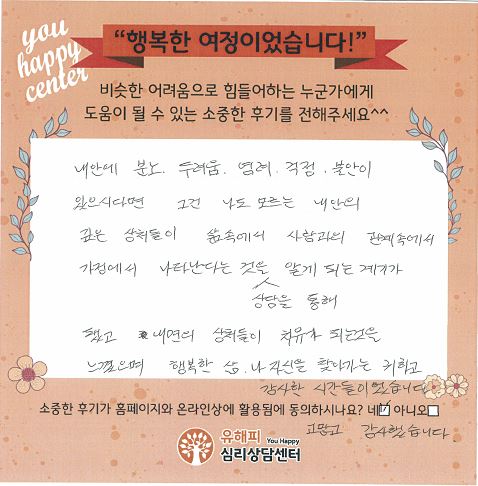 you
happy
center
“행복한 여정이었습니다!”
비슷한 어려움으로 힘들어하는 누군가에게
도움이 될 수 있는 소중한 후기를 전해주세요^^
내안에 분노. 두려움. 염려. 걱정. 불안이
있으시다면 그건 나도 모르는 내안의
깊은 상처들이 삶속에서 사람과의 관계속에서
가정에서 나타난다는 것을 알게 되는 계기가
상담을 통해
됐고 내면의 상처들이 치유가 되는것을
느꼈으며 행복한 삶. 나 자신을 찾아가는 귀하고
감사한 시간들이었습니다
소중한 후기가 홈페이지와 온라인상에 활용됨에 동의하시나요? 네 아니오
고맙고 감사했습니다.
유해피 You Happy
심리상담센터